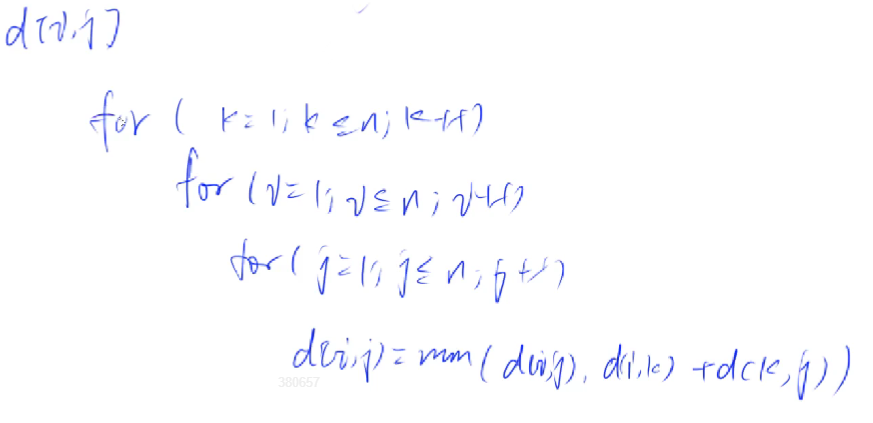 d[i,j]
for ( k=1; k≤n; k++)
for (i=1; i≤n; i++)
for( j=1; j≤n; j++)
d(i,j)=min( d(i,j), d(i,k) +d(k,j))
380657